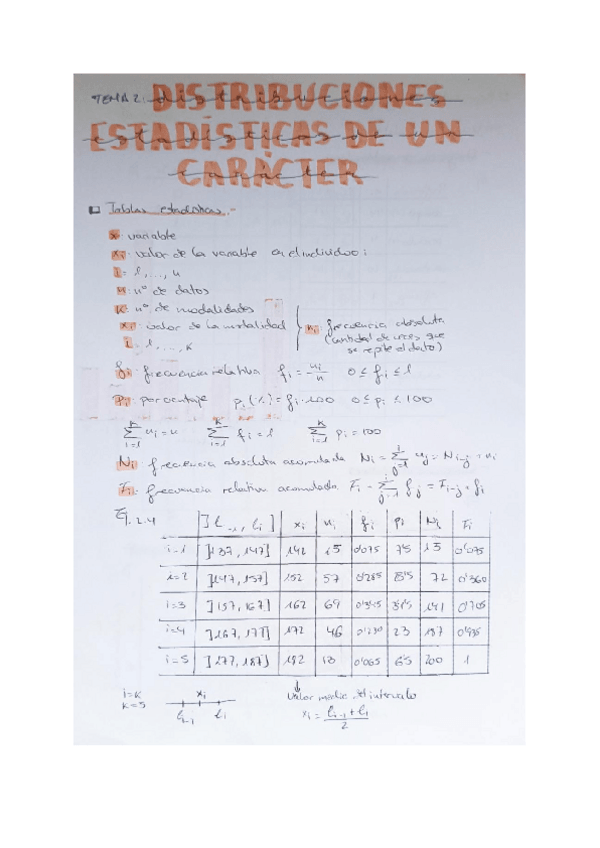 TEMA 2: DISTRIBUCIONES
ESTADÍSTICAS DE UN
CARÁCTER
Tablas estadísticas.-
x: variable
xi: valor de la variable en el individuo i
i = 1, ..., n
n: nº de datos
k: nº de modalidades
xi: valor de la modalidad
i = 1, ..., k
ni: frecuencia absoluta
(cantidad de veces que
se repite el dato)
fi: frecuencia relativa fi = ni/n 0 ≤ fi ≤ 1
pi: porcentaje pi(%) = fi · 100 0 ≤ pi ≤ 100
k∑i=1 ni = n k∑i=1 fi = 1 k∑i=1 pi = 100
Ni: frecuencia absoluta acumulada Ni = i∑j=1 nj = Ni-j + ni
Fi: frecuencia relativa acumulada Fi = i∑j=1 fj = Fi-j + fi
Ej. 2.4
]li-1, li] xi ni fi pi Ni Fi
i=1 ]137, 147] 142 15 0'075 7'5 15 0'075
i=2 ]147, 157] 152 57 0'285 72 0'360
i=3 ]157, 167] 162 69 0'345 141 0'705
i=4 ]167, 177] 172 46 0'230 23 187
i=5 ]177, 187] 182 13 0'065 6'5 200 1
i=k
k=5
xi
li-1 li
Valor medio del intervalo
xi = (li-1 + li)/2